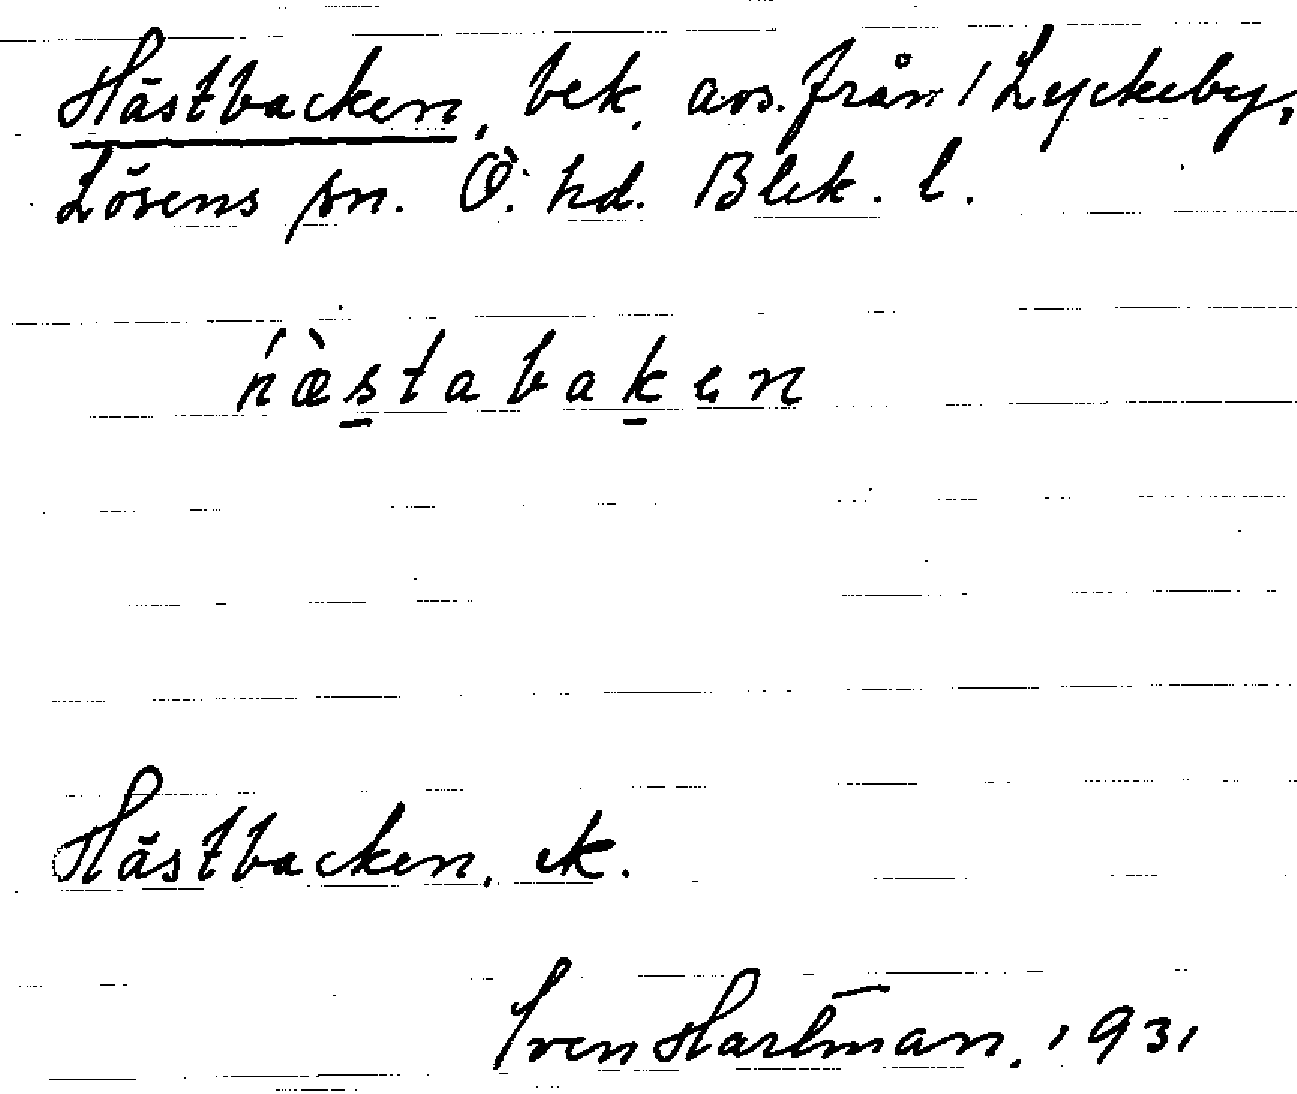 Hästbacken, bek. avs. från 1 Lyckeby,
Lösens sn. Ö. hd. Blek. l.
hæ̀stabaken
Hästbacken, ek.
Sven Hartman, 1931